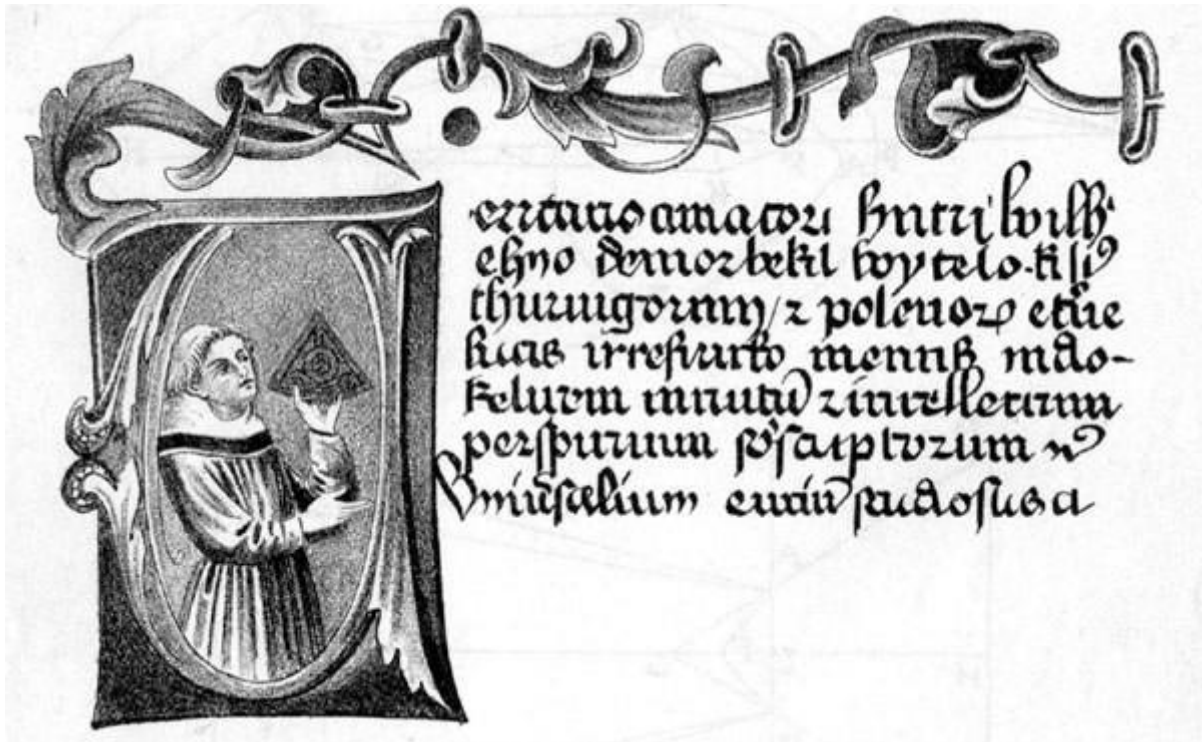 eritatis amatori fratri wilh
elmo demorbeka wytelo filiꝰ
thuringorum / ⁊ polonoꝝ etne
lucis irrefracto mentis radio-
felicem intuitū ⁊ intellectum
perspicuum sb'scriptorum
Vniuersalium entiū studiosus a